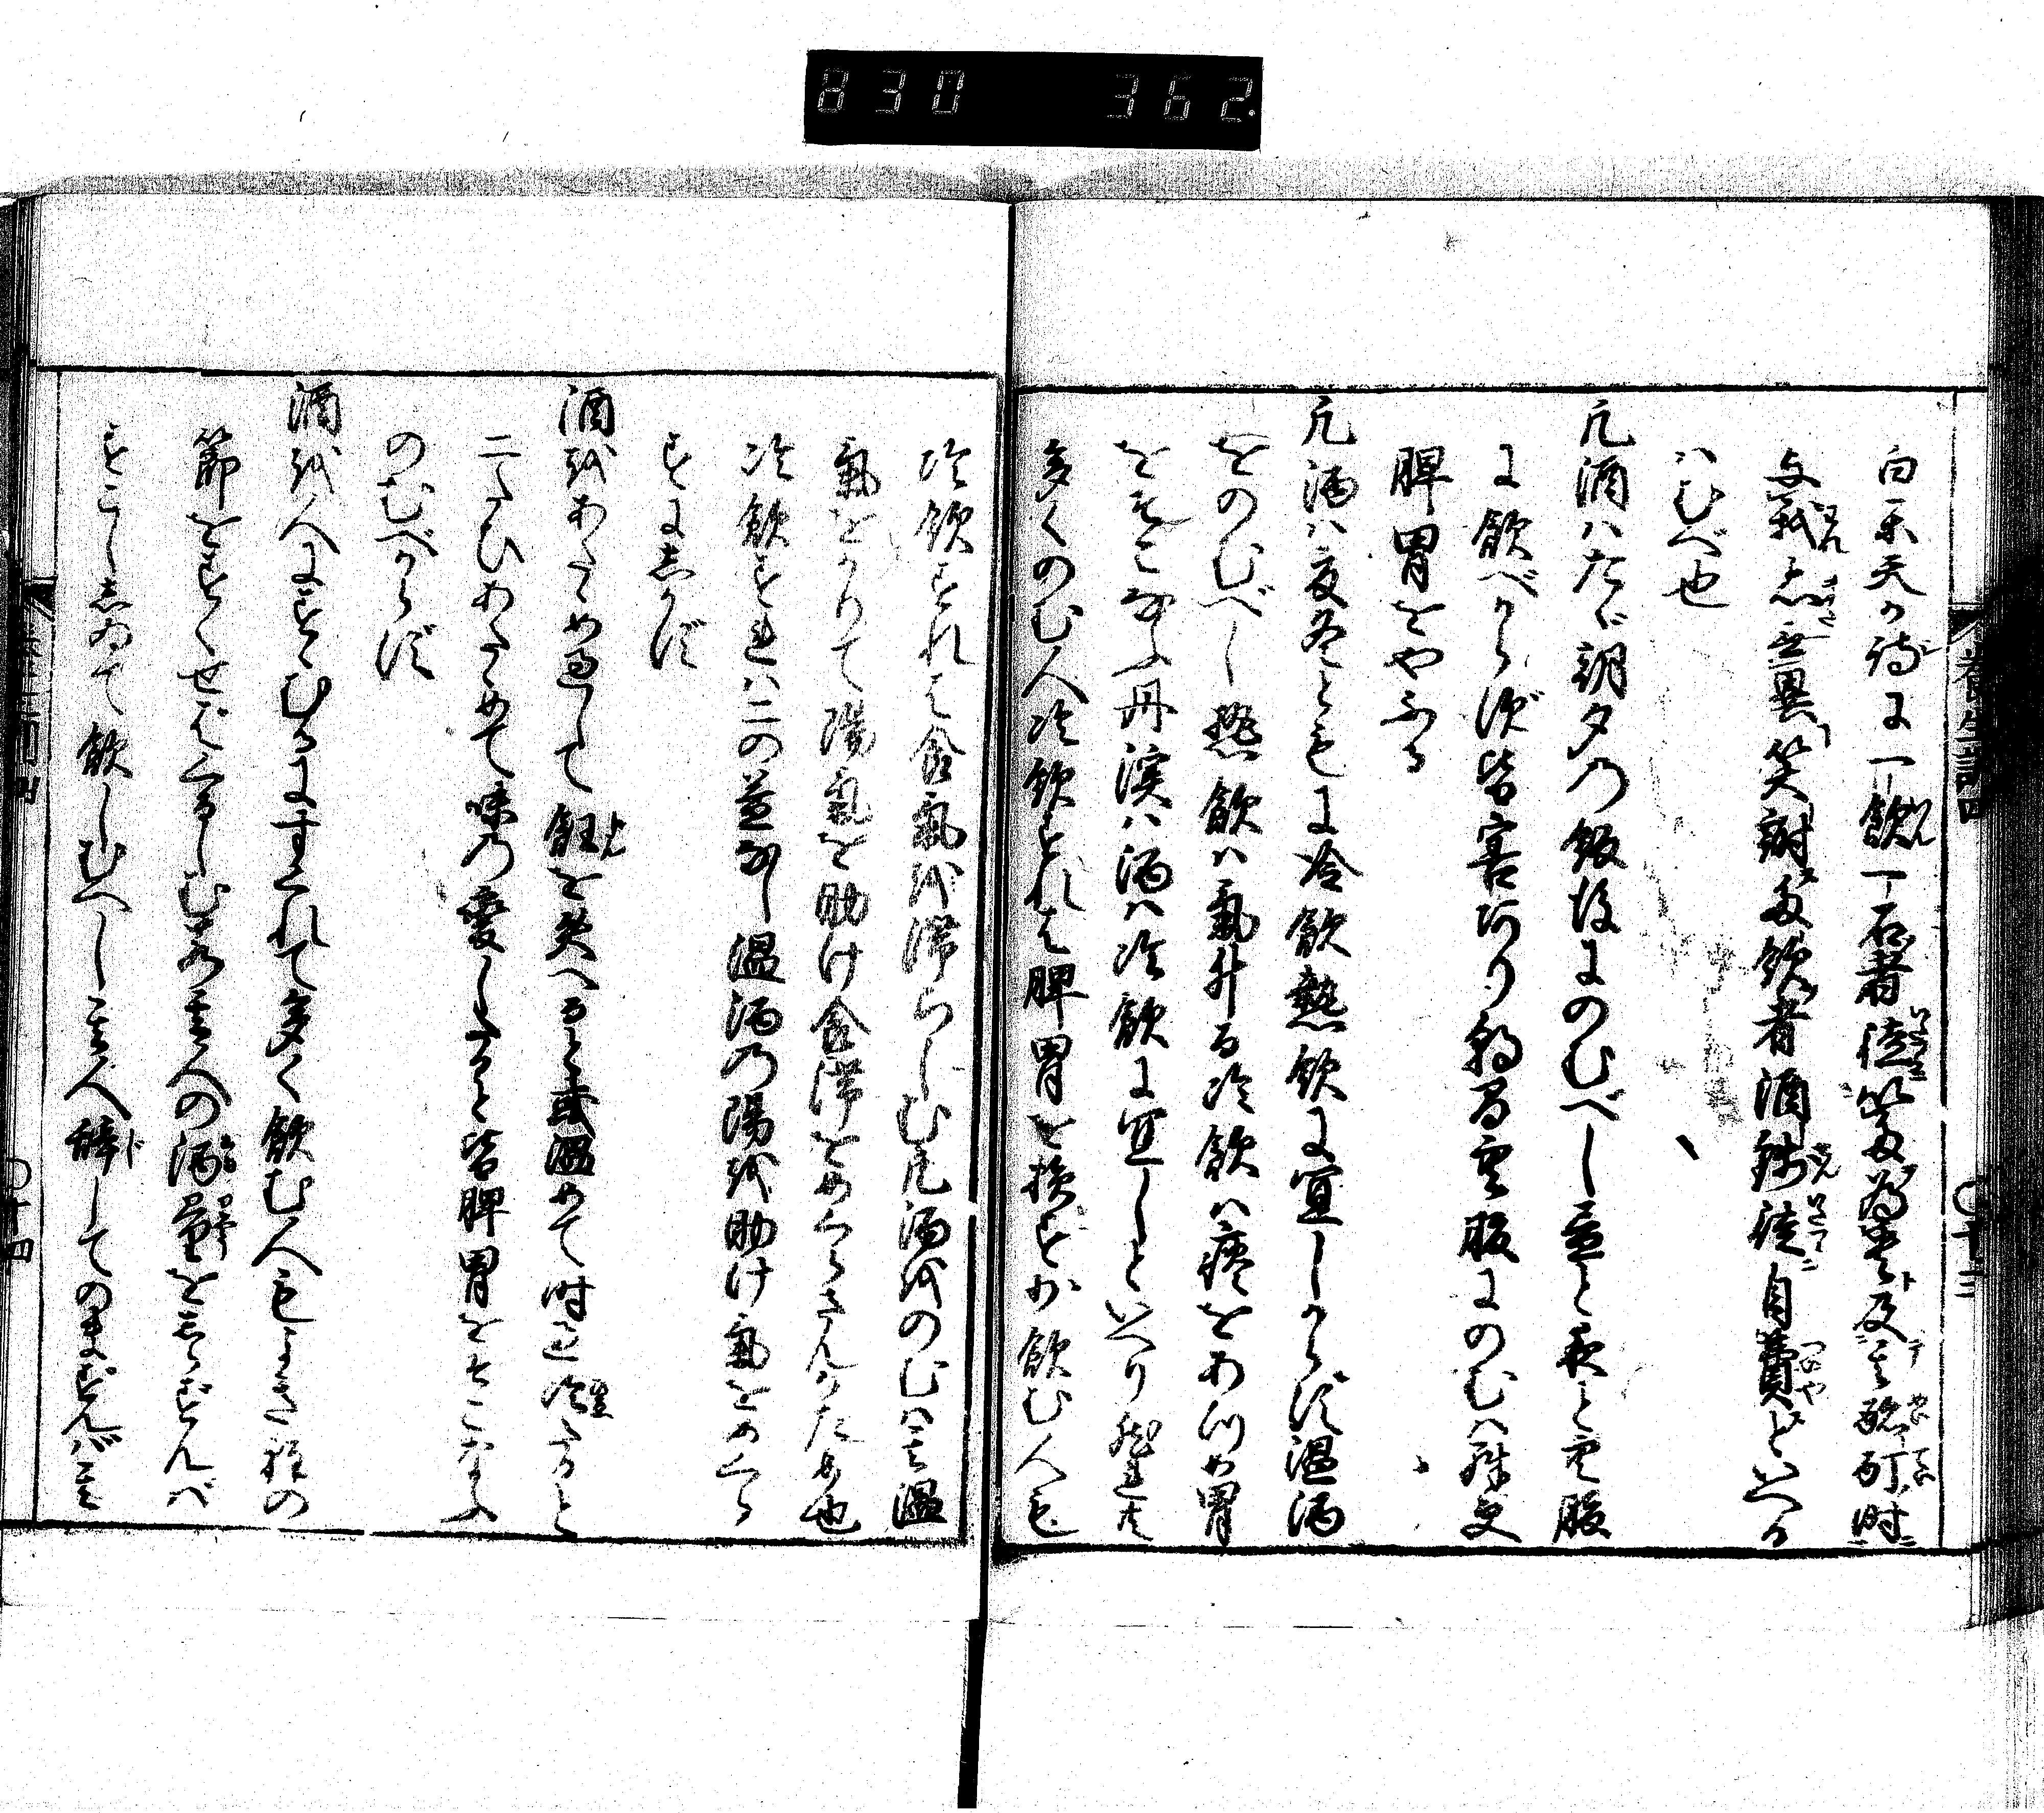 830 362.
養生訓四
〇十三
白楽天が詩に一飲一石者徒以多為貴及其酩酊時
与我亦無異笑謝多飲者酒銭徒自費といへる
ハむべ也
凡酒ハただ朝夕の飯後にのむべし昼と夜と空腹
に飲べからず皆害あり朝間空腹にのむハ殊更
脾胃をやぶる
凡酒ハ夏冬ともに冷飲熱飲に宜しからず温酒
をのむべし熱飲ハ気升る冷飲ハ痰をあつめ胃
をそこなふ丹渓ハ酒ハ冷飲に宜しといへり然共
多くのむ人冷飲すれば脾胃を損ず少飲む人も
冷飲すれば食気を滞らしむ凡酒をのむハ其温
気をかりて陽気を助け食滞をめぐらさんがため也
冷飲すれハ二の益なし温酒の陽を助け気をめぐら
すにしかず
酒をあたゝめ過して飪を失へると或温めて時過冷たると
二たびあたゝめて味の変じたると皆脾胃をそこなふ
のむべからず
酒を人にすゝむるにすぐれて多く飲む人もよき程の
節をすぐせばくるしむ若其人の酒量をしらずんば
すこししゐて飲しむべし其人辞してのまずんバ其
養生訓四
〇十四